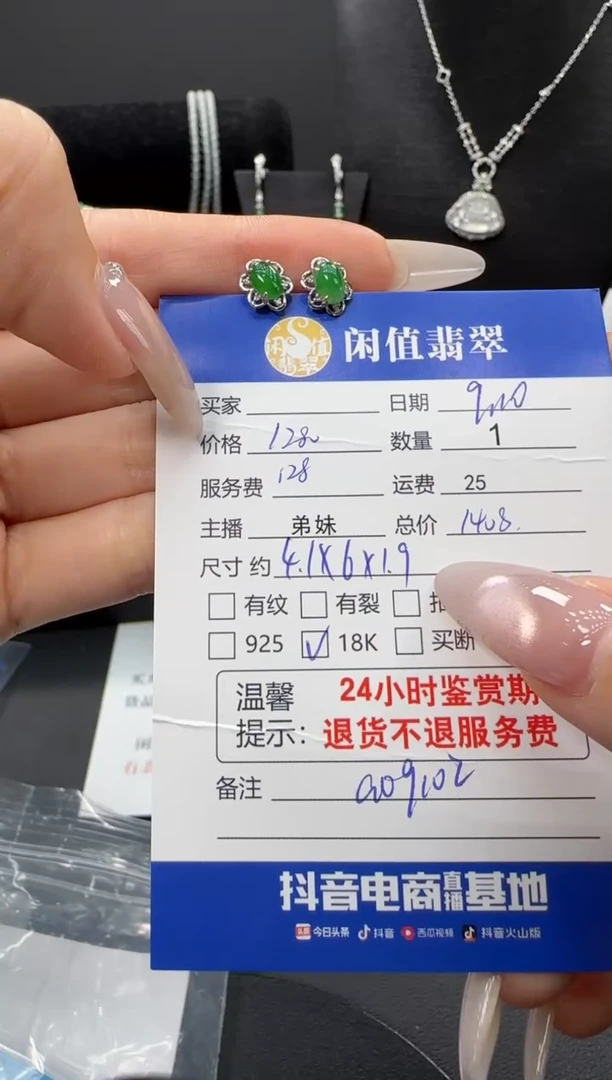 闲值翡翠
闲值
翡翠
买家 日期 9.10
价格 1280 数量 1
服务费 128 运费 25
主播 弟妹 总价 1408.
尺寸 约 4.1X6X1.9
有纹 有裂
925 ✓ 18K 买断
温馨提示： 24小时鉴赏期
退货不退服务费
备注
抖音电商直播基地
头条 今日头条 抖音 西瓜视频 抖音火山版